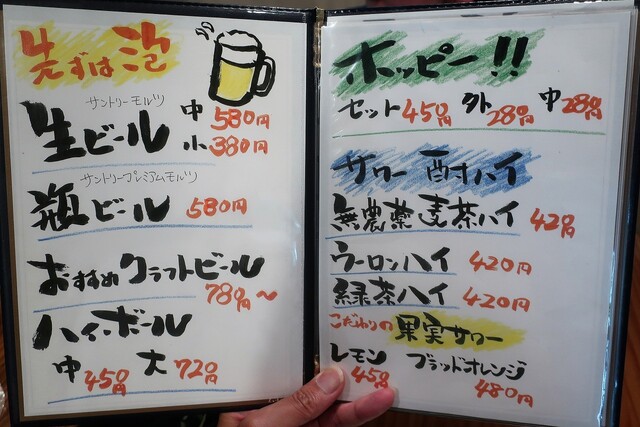 先ずは泡
サントリーモルツ
生ビール 中 580円
小 380円
サントリープレミアムモルツ
瓶ビール 580円
おすすめクラフトビール
780円〜
ハイボール
中 450円 大 720円
ホッピー!!
セット 450円 外 280円 中 280円
サワー 酎ハイ
無農薬麦茶ハイ 420円
ウーロンハイ 420円
緑茶ハイ 420円
こだわりの果実サワー
レモン 450円 ブラッドオレンジ 480円